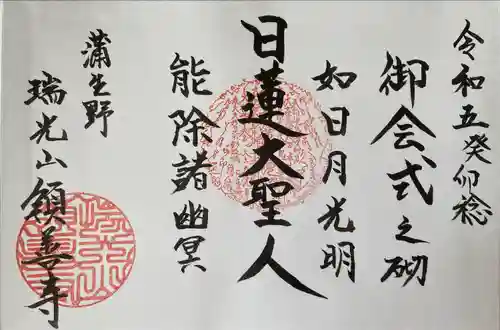 令和五癸卯稔
御会式之砌
如日月光明
日蓮大聖人
能除諸幽冥
蒲生野
瑞光山 領善寺